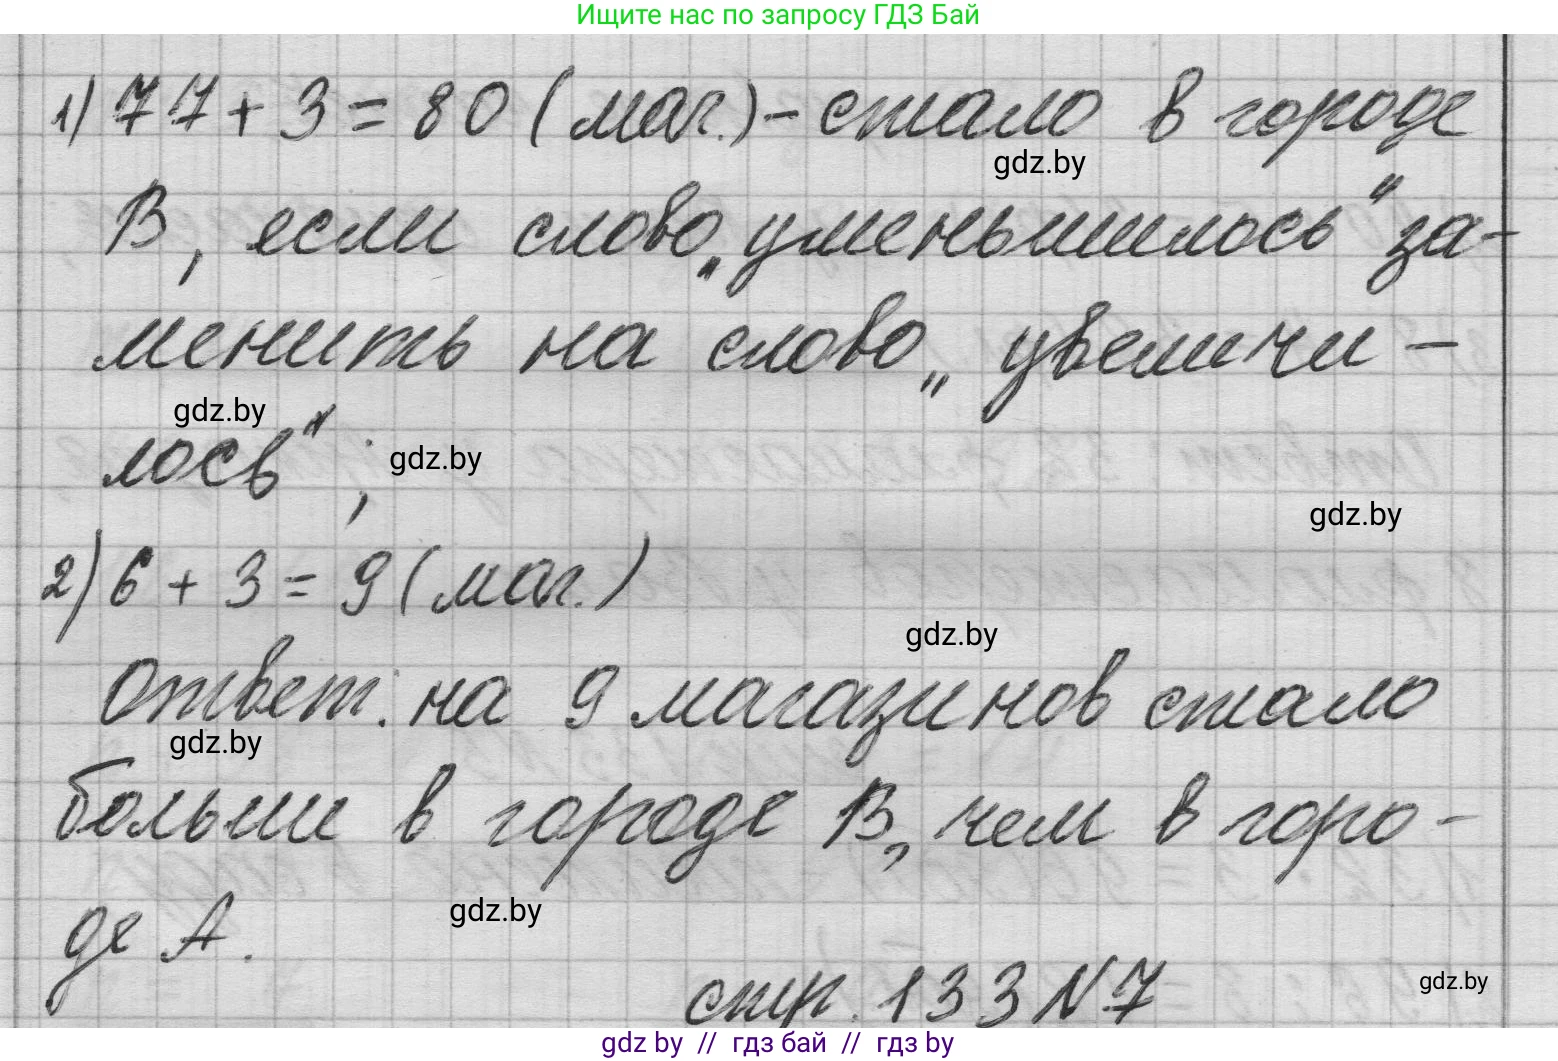 Ищите нас по запросу ГДЗ Бай
1) 77 + 3 = 80 (маг.) - стало в городе
gdz.by
В, если слово „уменьшилось“ за-
менить на слово „увеличи-
gdz.by
лось“;
gdz.by
gdz.by
2) 6 + 3 = 9 (маг.)
gdz.by
Ответ: на 9 магазинов стало
gdz.by
больши в городе В, чем в горо-
де А.
gdz.by
стр. 133 N7
gdz.by
gdz by // гдз бай // гдз by